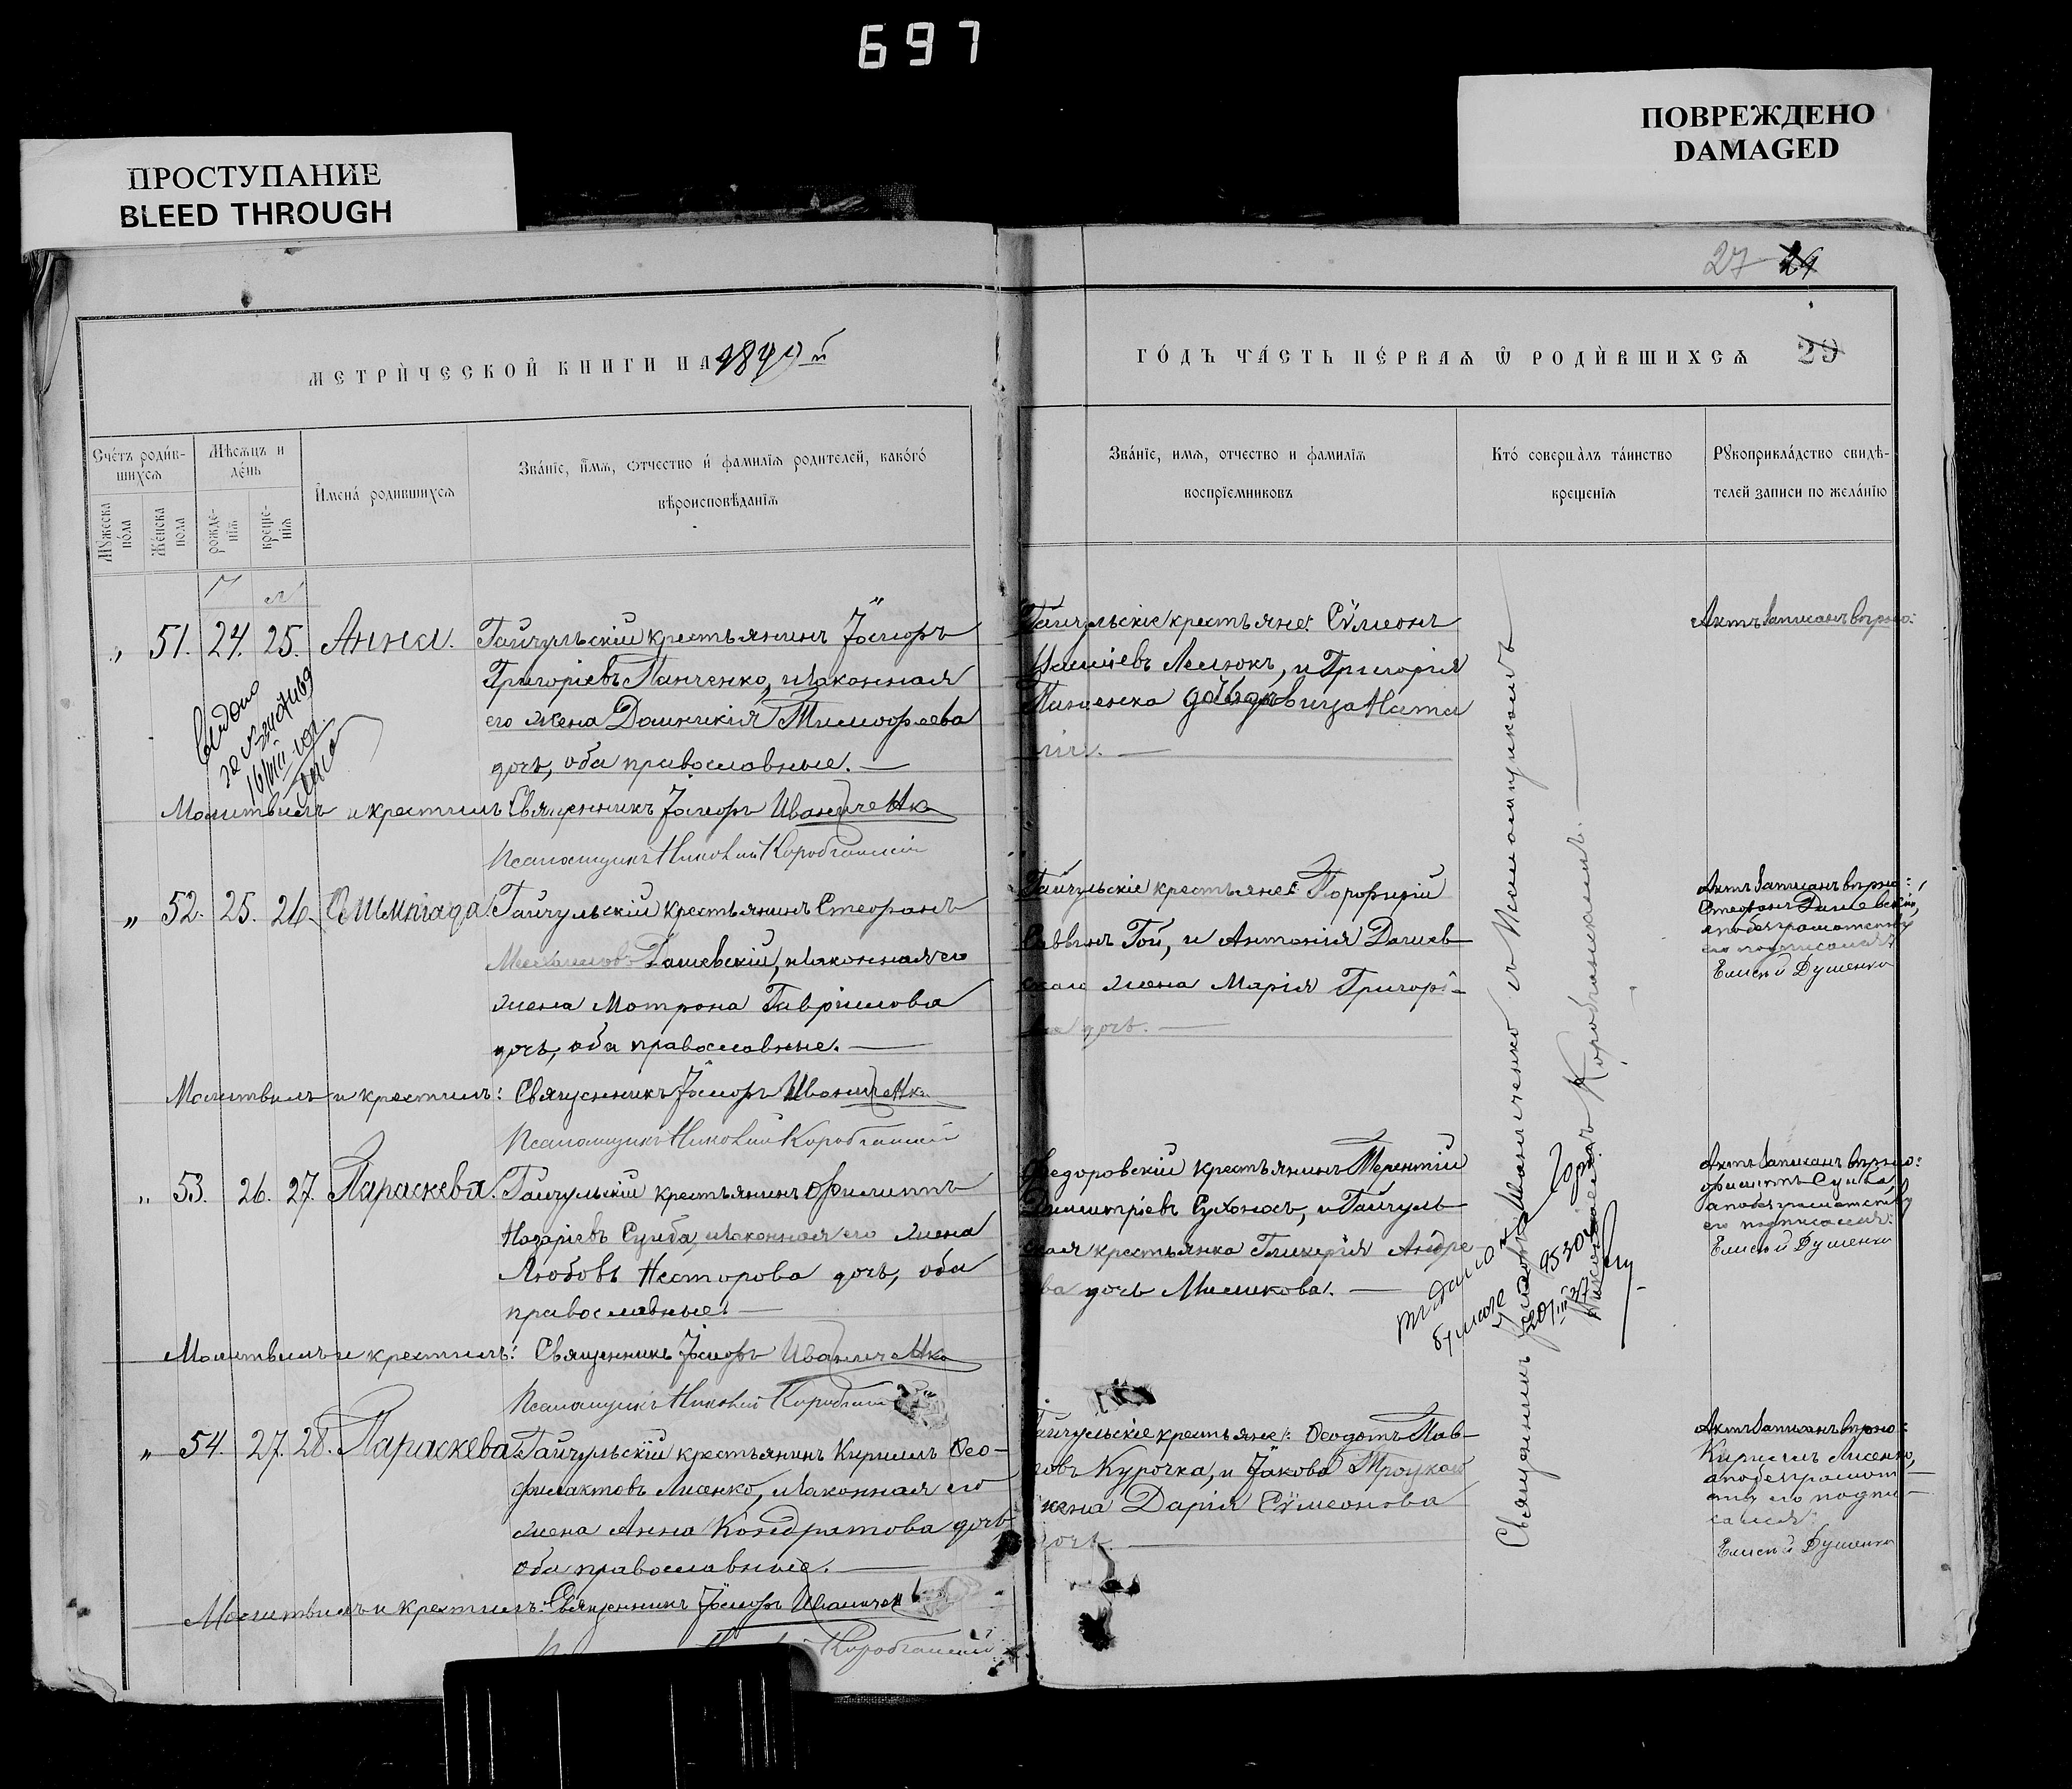 697
ПРОСТУПАНИЕ
BLEED THROUGH
ПОВРЕЖДЕНО
DAMAGED
27 24
МЕТРИ́ЧЕСКОЙ КНИГИ НА
ГО́ДЪ ЧА́СТЬ ПЕ́РВАѦ Ѿ РОДИ́ВШИХСѦ 29
Сче́тъ роди́в-
шихсѧ
Му́жеска по́ла
Же́нска пола
Мѣсѧцъ и де́нь
рожде-нїѧ
креще-нїѧ
И́мена́ родившихсѧ
Зва́нїе, и́мѧ, ѻтчество и́ фамилїѧ родителей, како́гѡ́
вѣроисповѣданїѧ
Зва́нїе, имѧ, отчество и фамилїѧ
воспрїемниковъ
Кто́ соверша́лъ та́инство
крещенїѧ
Рꙋкоприкла́дство свидѣ-
телей записи по жела́нїю
„ 51. 24. 25. Анна. Гайчульскій крестьянинъ Іосифъ
Григоріевъ Панченко, и законная
его жена Домникія Тимофеева
дочь, оба православные. —
Молитвилъ и крестилъ Священникъ Іосифъ Иваниченко
Псаломщикъ Николай Коробчанскій
Гайчульскіе крестьяне: Сѵмеонъ
Лемюкъ, и Григорія
Панченка девица
Актъ записанъ вѣрно:
„ 52. 25. 26. Гайчульскій крестьянинъ Стефанъ
Дашевскій, и законная его
жена Мотрона Гавріилова
дочь, оба православные. —
Молитвилъ и крестилъ: Священникъ Іосифъ Иваниченко
Псаломщикъ Николай Коробчанскій
Гайчульскіе крестьяне: Порфирій
Саввинъ Гой, и Антонія Дашев-
скаго жена Марія Григорі-
ева дочь. —
Актъ записанъ вѣрно:
Стефанъ Дашевскій,
а по безграмотству
его подписался
Елисей Душенко
„ 53. 26. 27. Параскева. Гайчульскій крестьянинъ Филиппъ
Назаріевъ Сумба, и законная его жена
Любовь Несторова дочь, оба
православные. —
Молитвилъ и крестилъ: Священникъ Іосифъ Иваниченко
Псаломщикъ Николай Коробчанскій
Федоровскій крестьянинъ Терентій
Димитріевъ Сухоносъ, и Гайчуль-
ская крестьянка Гликерія Андре-
ва дочь Миликова. —
Актъ записанъ вѣрно:
Филиппъ Сумба,
а по безграмотству
его подписался:
Елисей Душенко
„ 54. 27. 28. Параскева. Гайчульскій крестьянинъ Кириллъ Ѳео-
филактовъ Лисенко, и законная его
жена Анна Кондратова дочь
оба православные. —
Молитвилъ и крестилъ: Священникъ Іосифъ Иваниченко
Коробчанскій
Гайчульскіе крестьяне: Ѳеодотъ Пав-
ловъ Курочка, и Іакова Троцкаго
жена Дарія Сѵмеонова
дочь. —
Актъ записанъ вѣрно:
Кириллъ Лисенко,
а по безграмот-
ству его подпи-
сался:
Елисей Душенко
Священникъ Іосифъ Иваниченко съ Псаломщикомъ
Николаемъ Коробчанскимъ. —